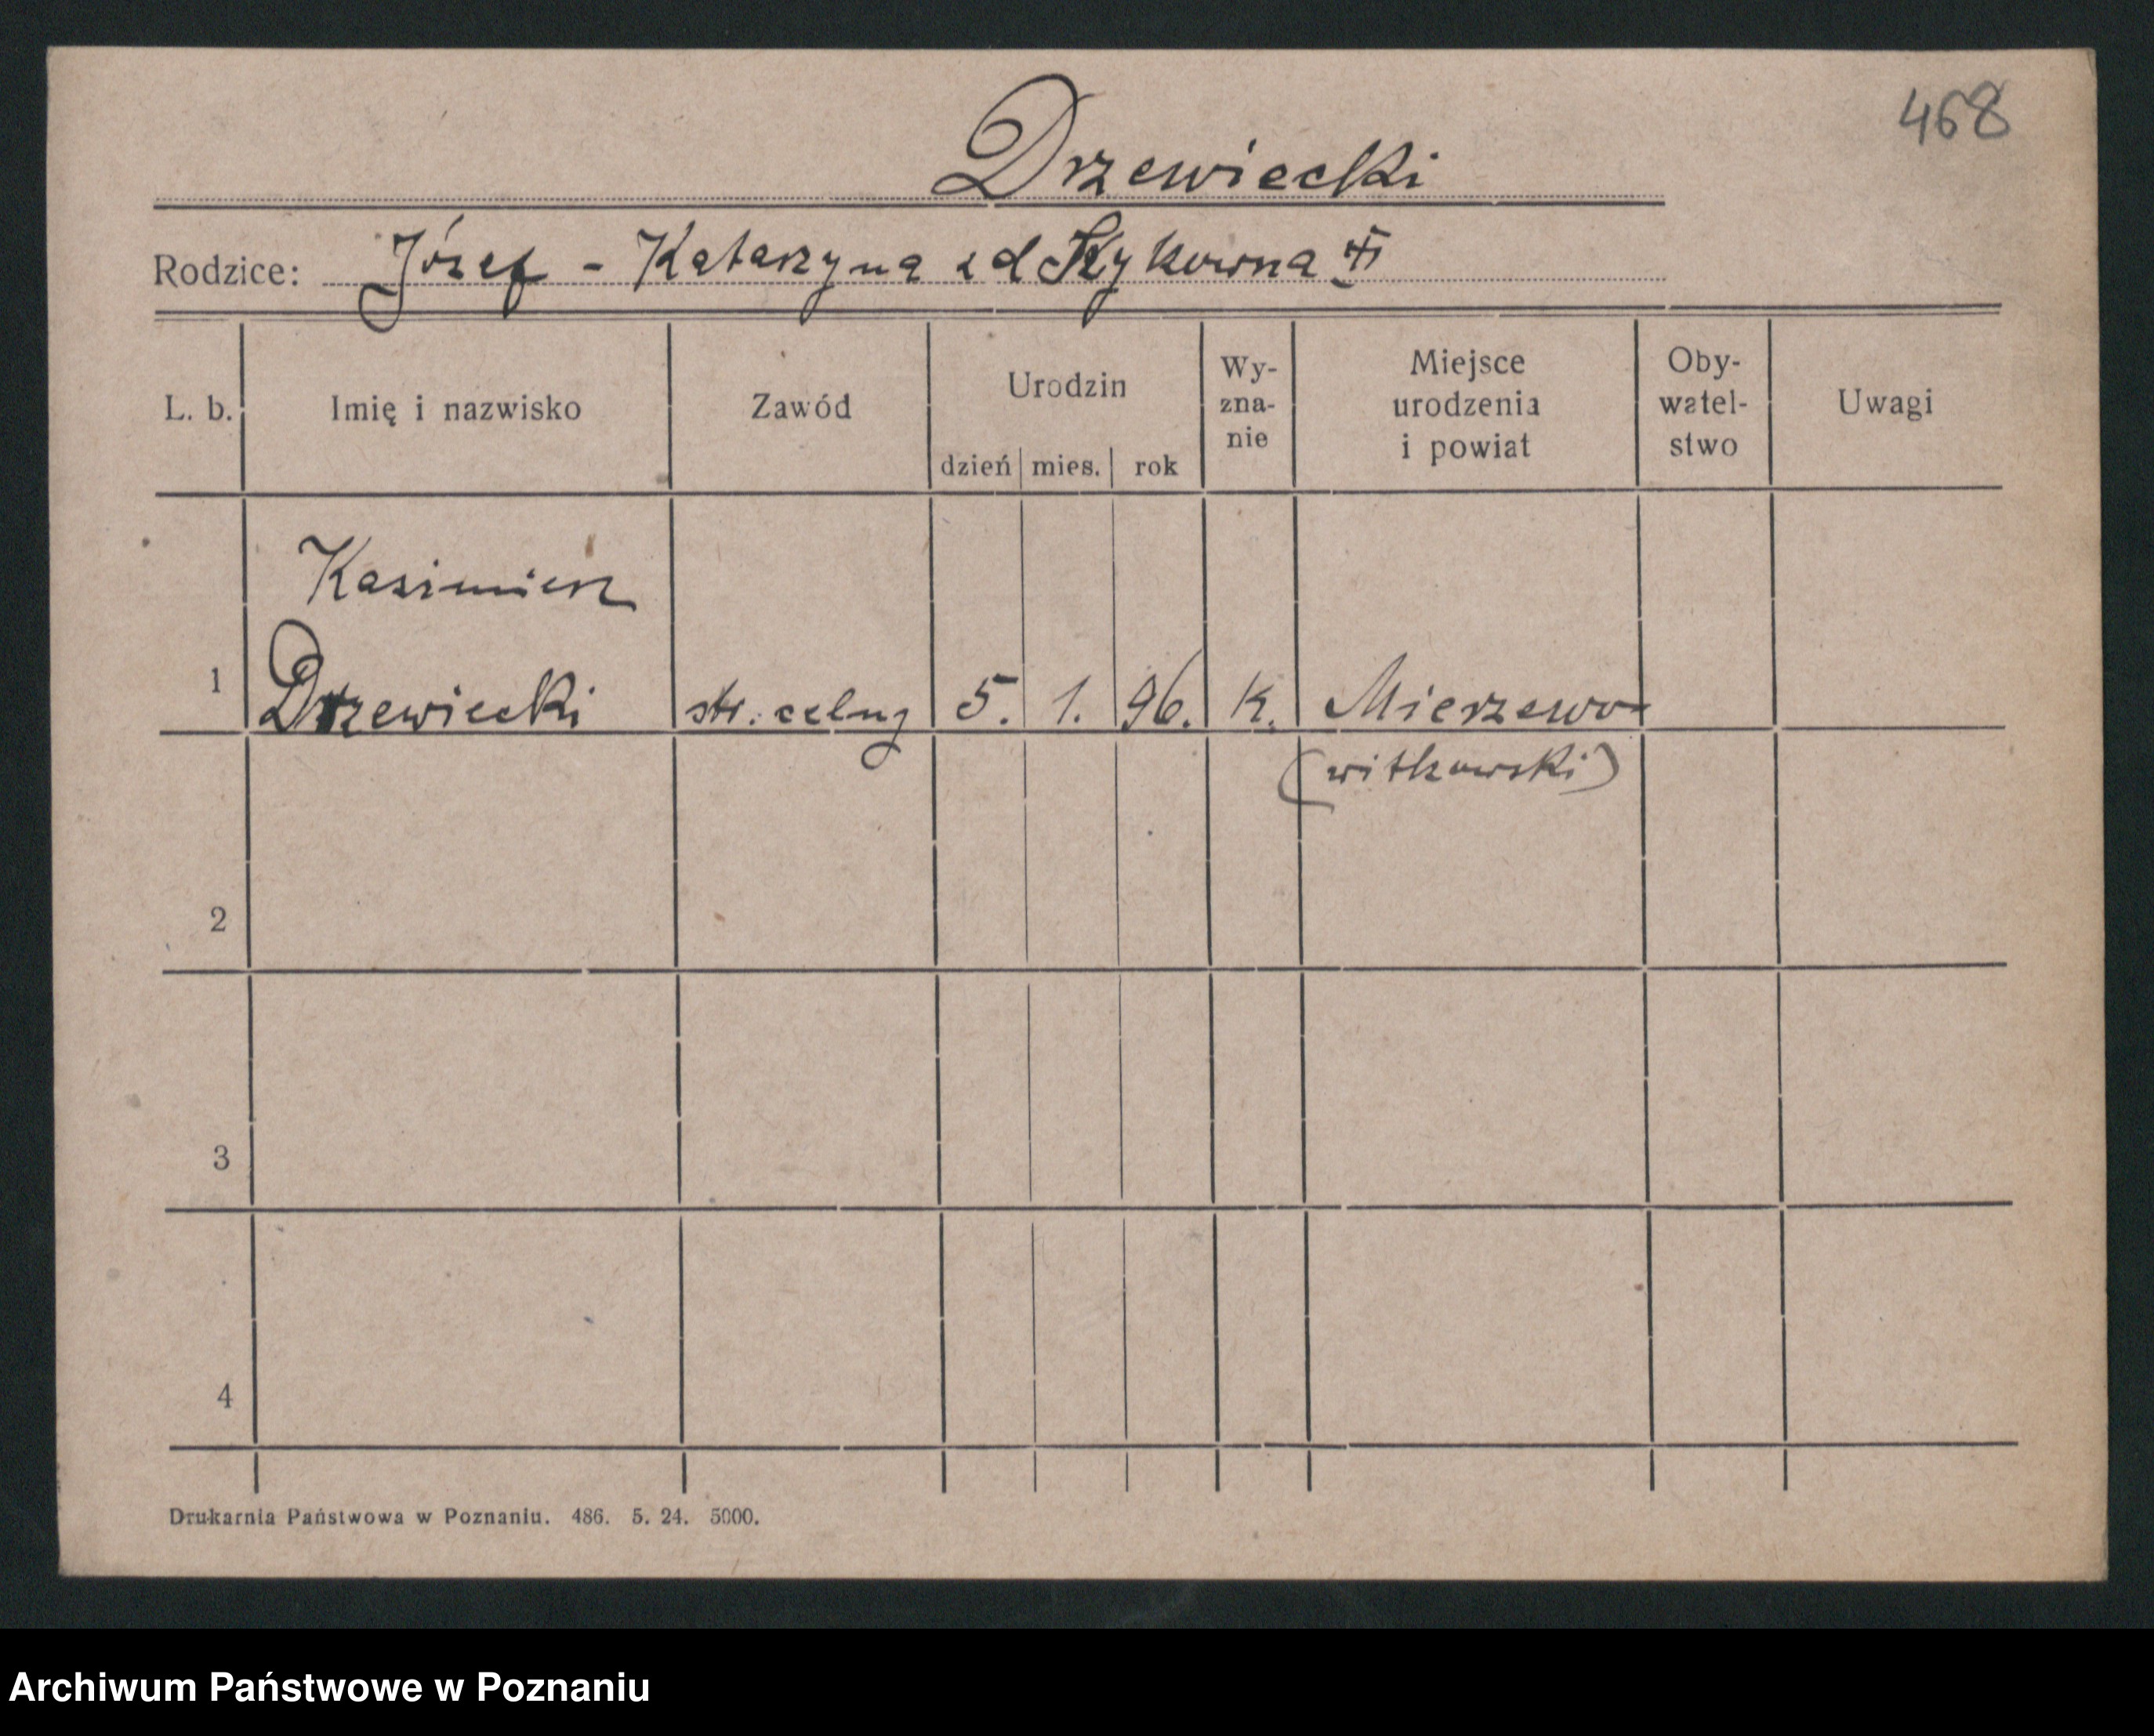 468
Drzewiecki
Rodzice: Józef - Katarzyna zd
L. b. Imię i nazwisko Zawód Urodzin dzień mies. rok Wy-zna-nie Miejsce urodzenia i powiat Oby-watel-stwo Uwagi
Kazimierz
1 Drzewiecki str. celny 5. 1. 96. K. Mierzewo
(witkowski)
2
3
4
Drukarnia Państwowa w Poznaniu. 486. 5. 24. 5000.
Archiwum Państwowe w Poznaniu